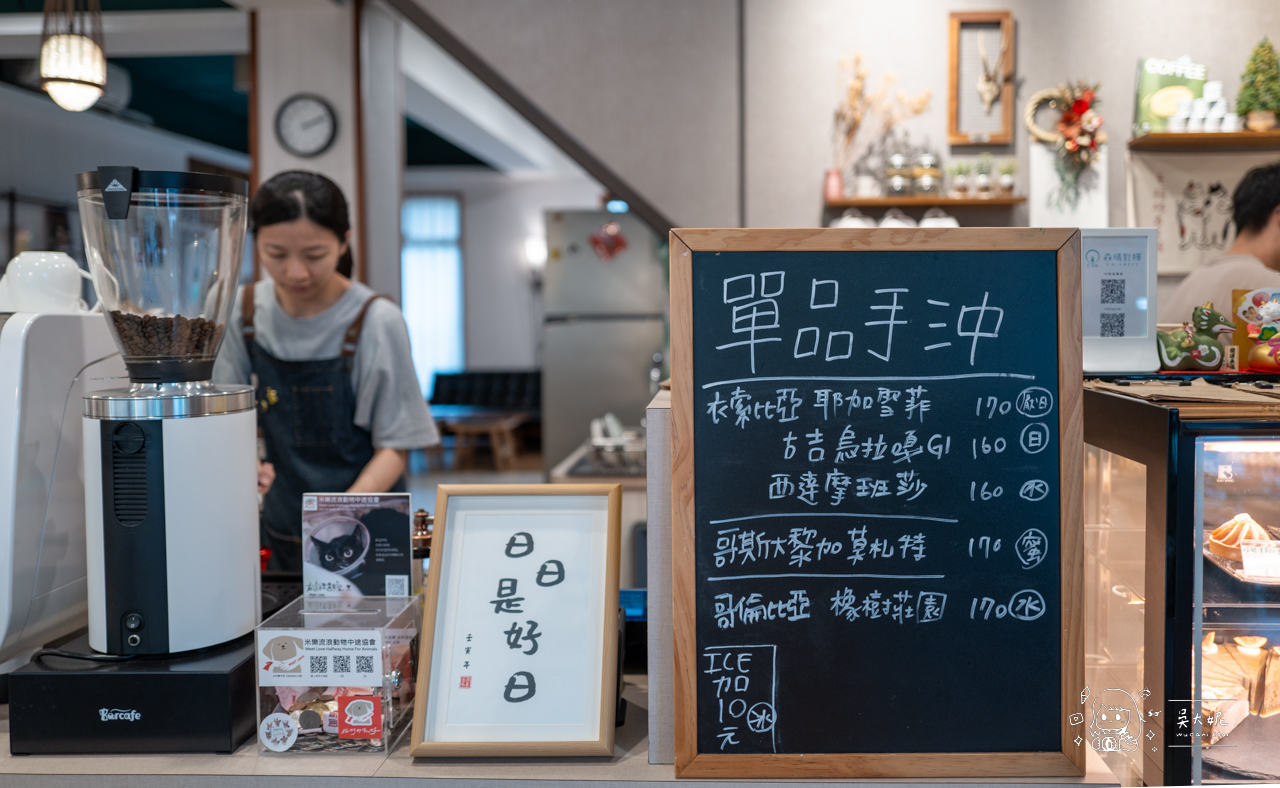 單品手沖
衣索比亞 耶加雪菲 170 厭日
古吉烏拉嘎G1 160 日
西達摩班莎 160 水
哥斯大黎加莫札特 170 蜜
哥倫比亞 橡樹莊園 170 水
ICE
加
10
元
冰
日
日
是
好
日
壬寅年
米樂流浪動物中途協會
米樂流浪動物中途協會
Meet Love Halfway Home For Animals
Barcafe
COFFEE
森晴對樺
吳大妮